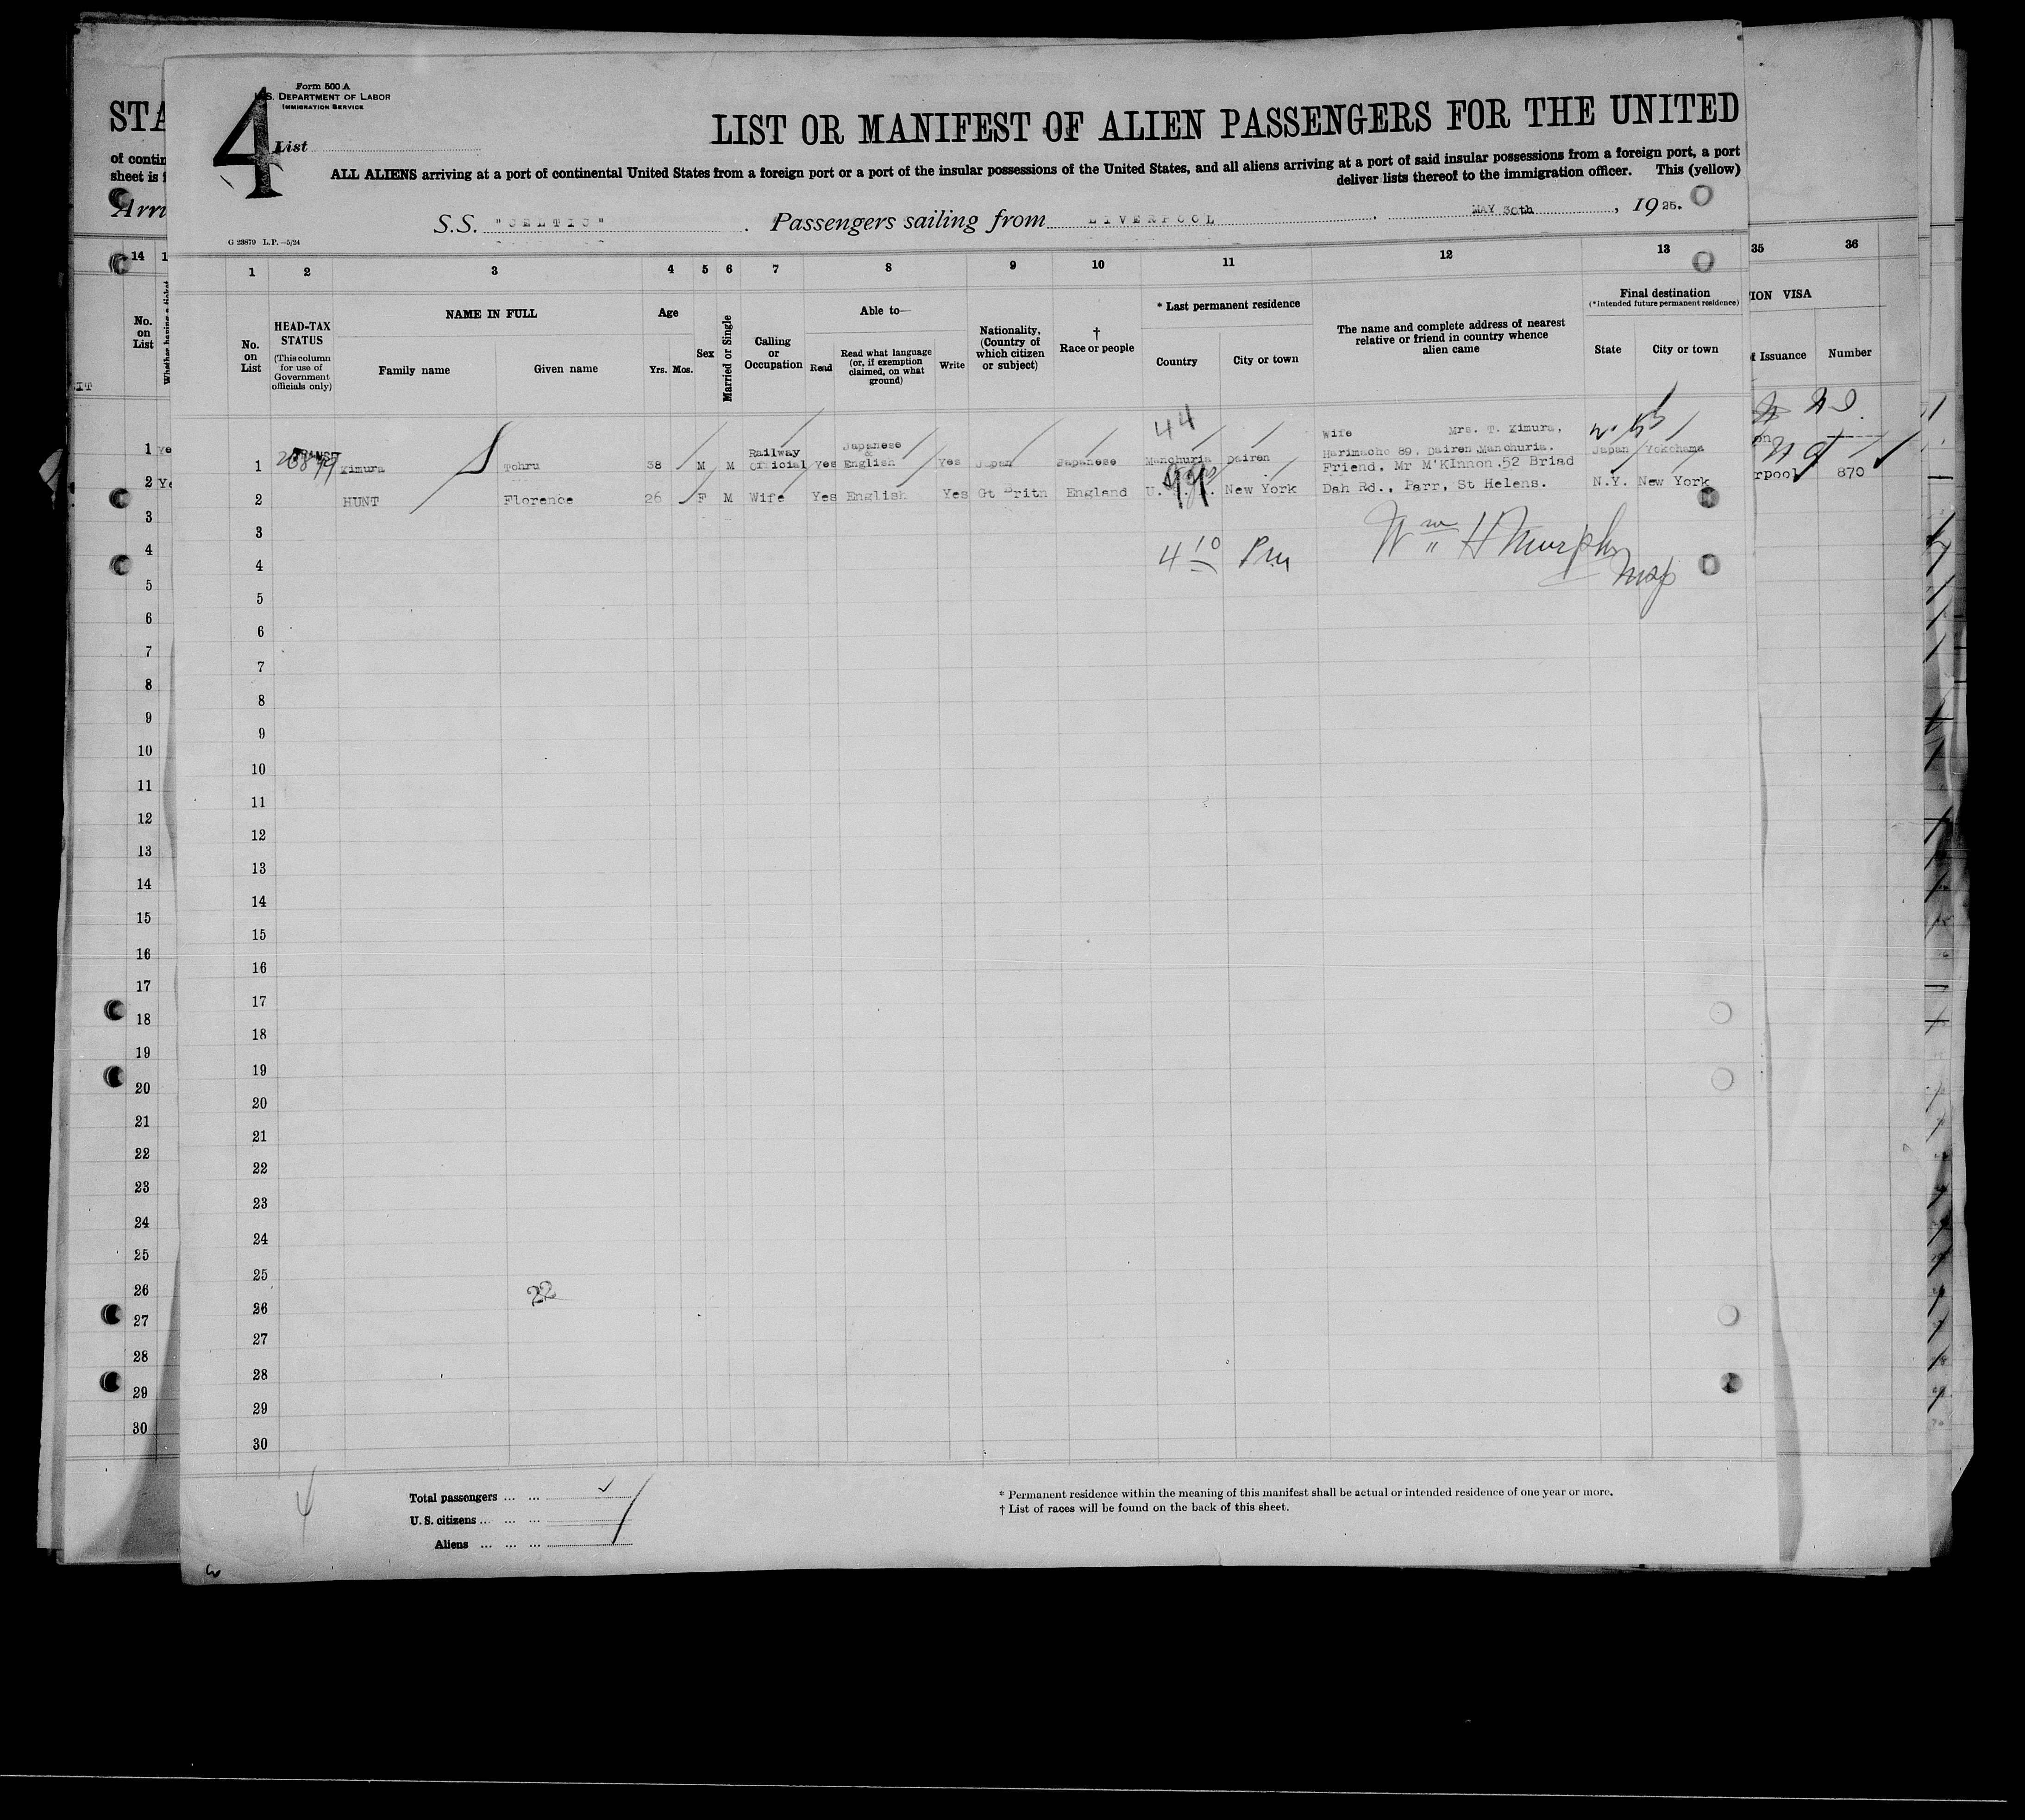 Form 500 A
U.S. DEPARTMENT OF LABOR
IMMIGRATION SERVICE
4
List
LIST OR MANIFEST OF ALIEN PASSENGERS FOR THE UNITED
ALL ALIENS arriving at a port of continental United States from a foreign port or a port of the insular possessions of the United States, and all aliens arriving at a port of said insular possessions from a foreign port, a port
deliver lists thereof to the immigration officer. This (yellow)
S.S. "CELTIC". Passengers sailing from LIVERPOOL. MAY 30th, 1925.
G 23879 L.P.—5/24
STA
of contin
sheet is
Arri
1 2 3 4 5 6 7 8 9 10 11 12 13
14 35 36
No. on List
HEAD-TAX STATUS
(This column for use of Government officials only)
NAME IN FULL
Family name
Given name
Age
Yrs. Mos.
Sex
Married or Single
Calling or Occupation
Able to—
Read
Read what language (or, if exemption claimed, on what ground)
Write
Nationality. (Country of which citizen or subject)
† Race or people
* Last permanent residence
Country
City or town
The name and complete address of nearest relative or friend in country whence alien came
Final destination
(*Intended future permanent residence)
State
City or town
No. on List
Whether having a ticket
ION VISA
f Issuance
Number
44
1 TRANSIT Kimura Tohru 38 M M Railway Official Yes Japanese & English Yes Japan Japanese Manchuria Dairen Wife Mrs. T. Kimura, Harimacho 89, Dairen Manchuria. Japan Yokohama
2 HUNT Florence 26 F M Wife Yes English Yes Gt Britn England U.S.A. New York Friend, Mr M'KInnon 52 Briad Dah Rd., Parr, St Helens. N.Y. New York
rpool 870
3
4 4 10 Pm Wm H Murphy Insp
5
6
7
8
9
10
11
12
13
14
15
16
17
18
19
20
21
22
23
24
25
22
26
27
28
29
30
1 Ye
2 Ye
3
4
5
6
7
8
9
10
11
12
13
14
15
16
17
18
19
20
21
22
23
24
25
26
27
28
29
30
4
Total passengers ... ...
U.S. citizens ... ... ...
Aliens ... ... ...
* Permanent residence within the meaning of this manifest shall be actual or intended residence of one year or more.
† List of races will be found on the back of this sheet.